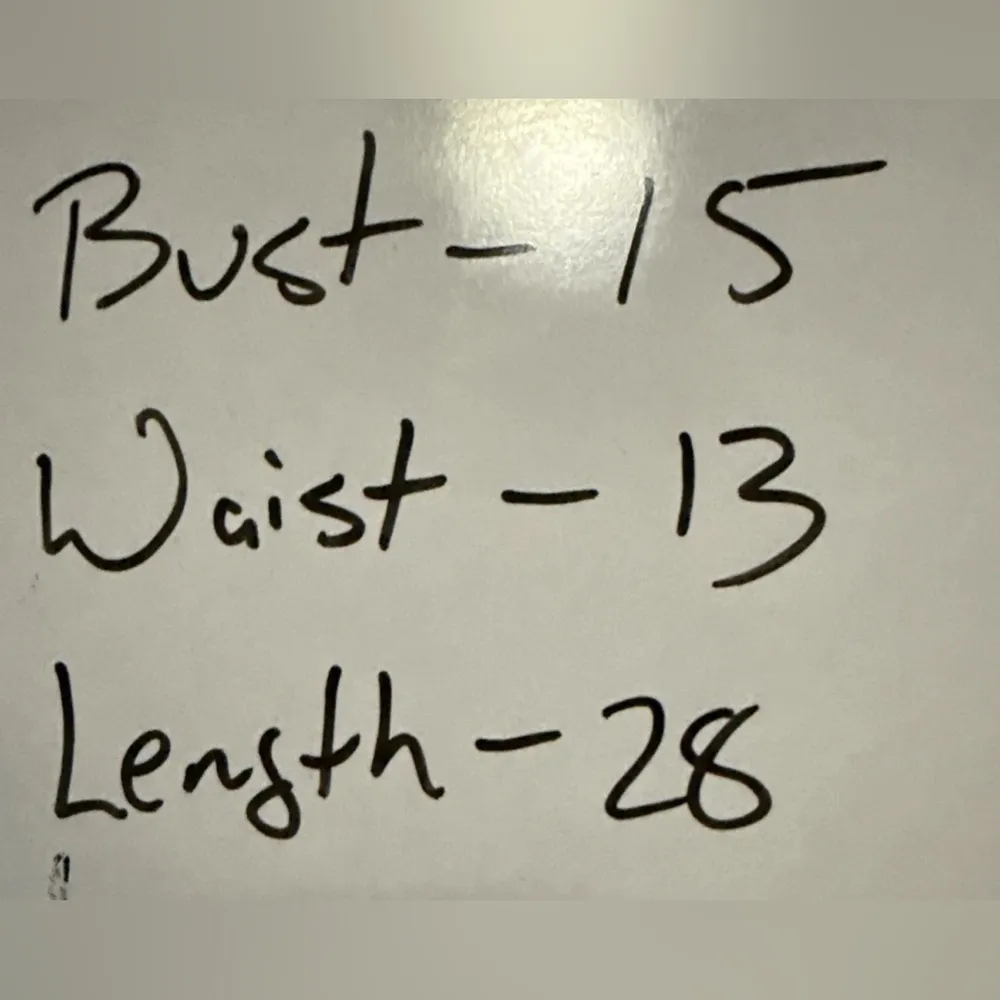 Bust - 15
Waist - 13
Length - 28